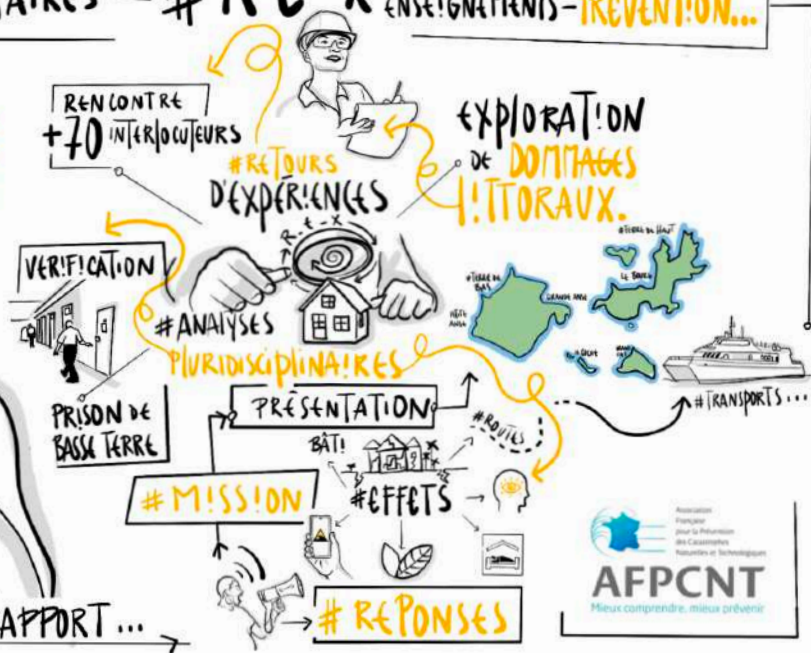 AIRES - #REX ENSEIGNEMENTS-PREVENTION...
RENCONTRE
+70 INTERLOCUTEURS
#RETOURS
D'EXPÉRIENCES
EXPLORATION
DE DOMMAGES
LITTORAUX.
R-E-X
VERIFICATION
PRISON DE
BASSE TERRE
#ANALYSES
PLURIDISCIPLINAIRES
#TERRE DE HAUT
LE BOURG
#TERRE DE
BAS
GRANDE ANSE
PETITE
ANSE
#TRANSPORTS...
PRÉSENTATION
BÂTI
#ROUTES
#EFFETS
#MISSION
#REPONSES
APPORT...
Association
Française
pour la Prévention
des Catastrophes
Naturelles et Technologiques
AFPCNT
Mieux comprendre, mieux prévenir